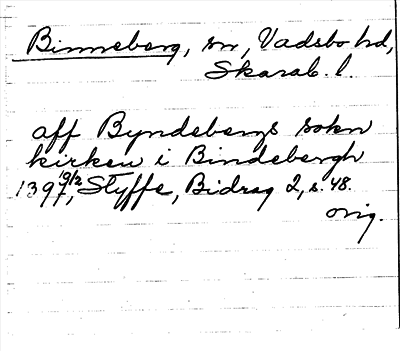 Binneberg, sn, Vadsbo hd,
Skarab. l.
aff Byndebergs sokn
kirken i Bindebergh
1397 19/2, Styffe, Bidrag 2, s. 48.
orig.